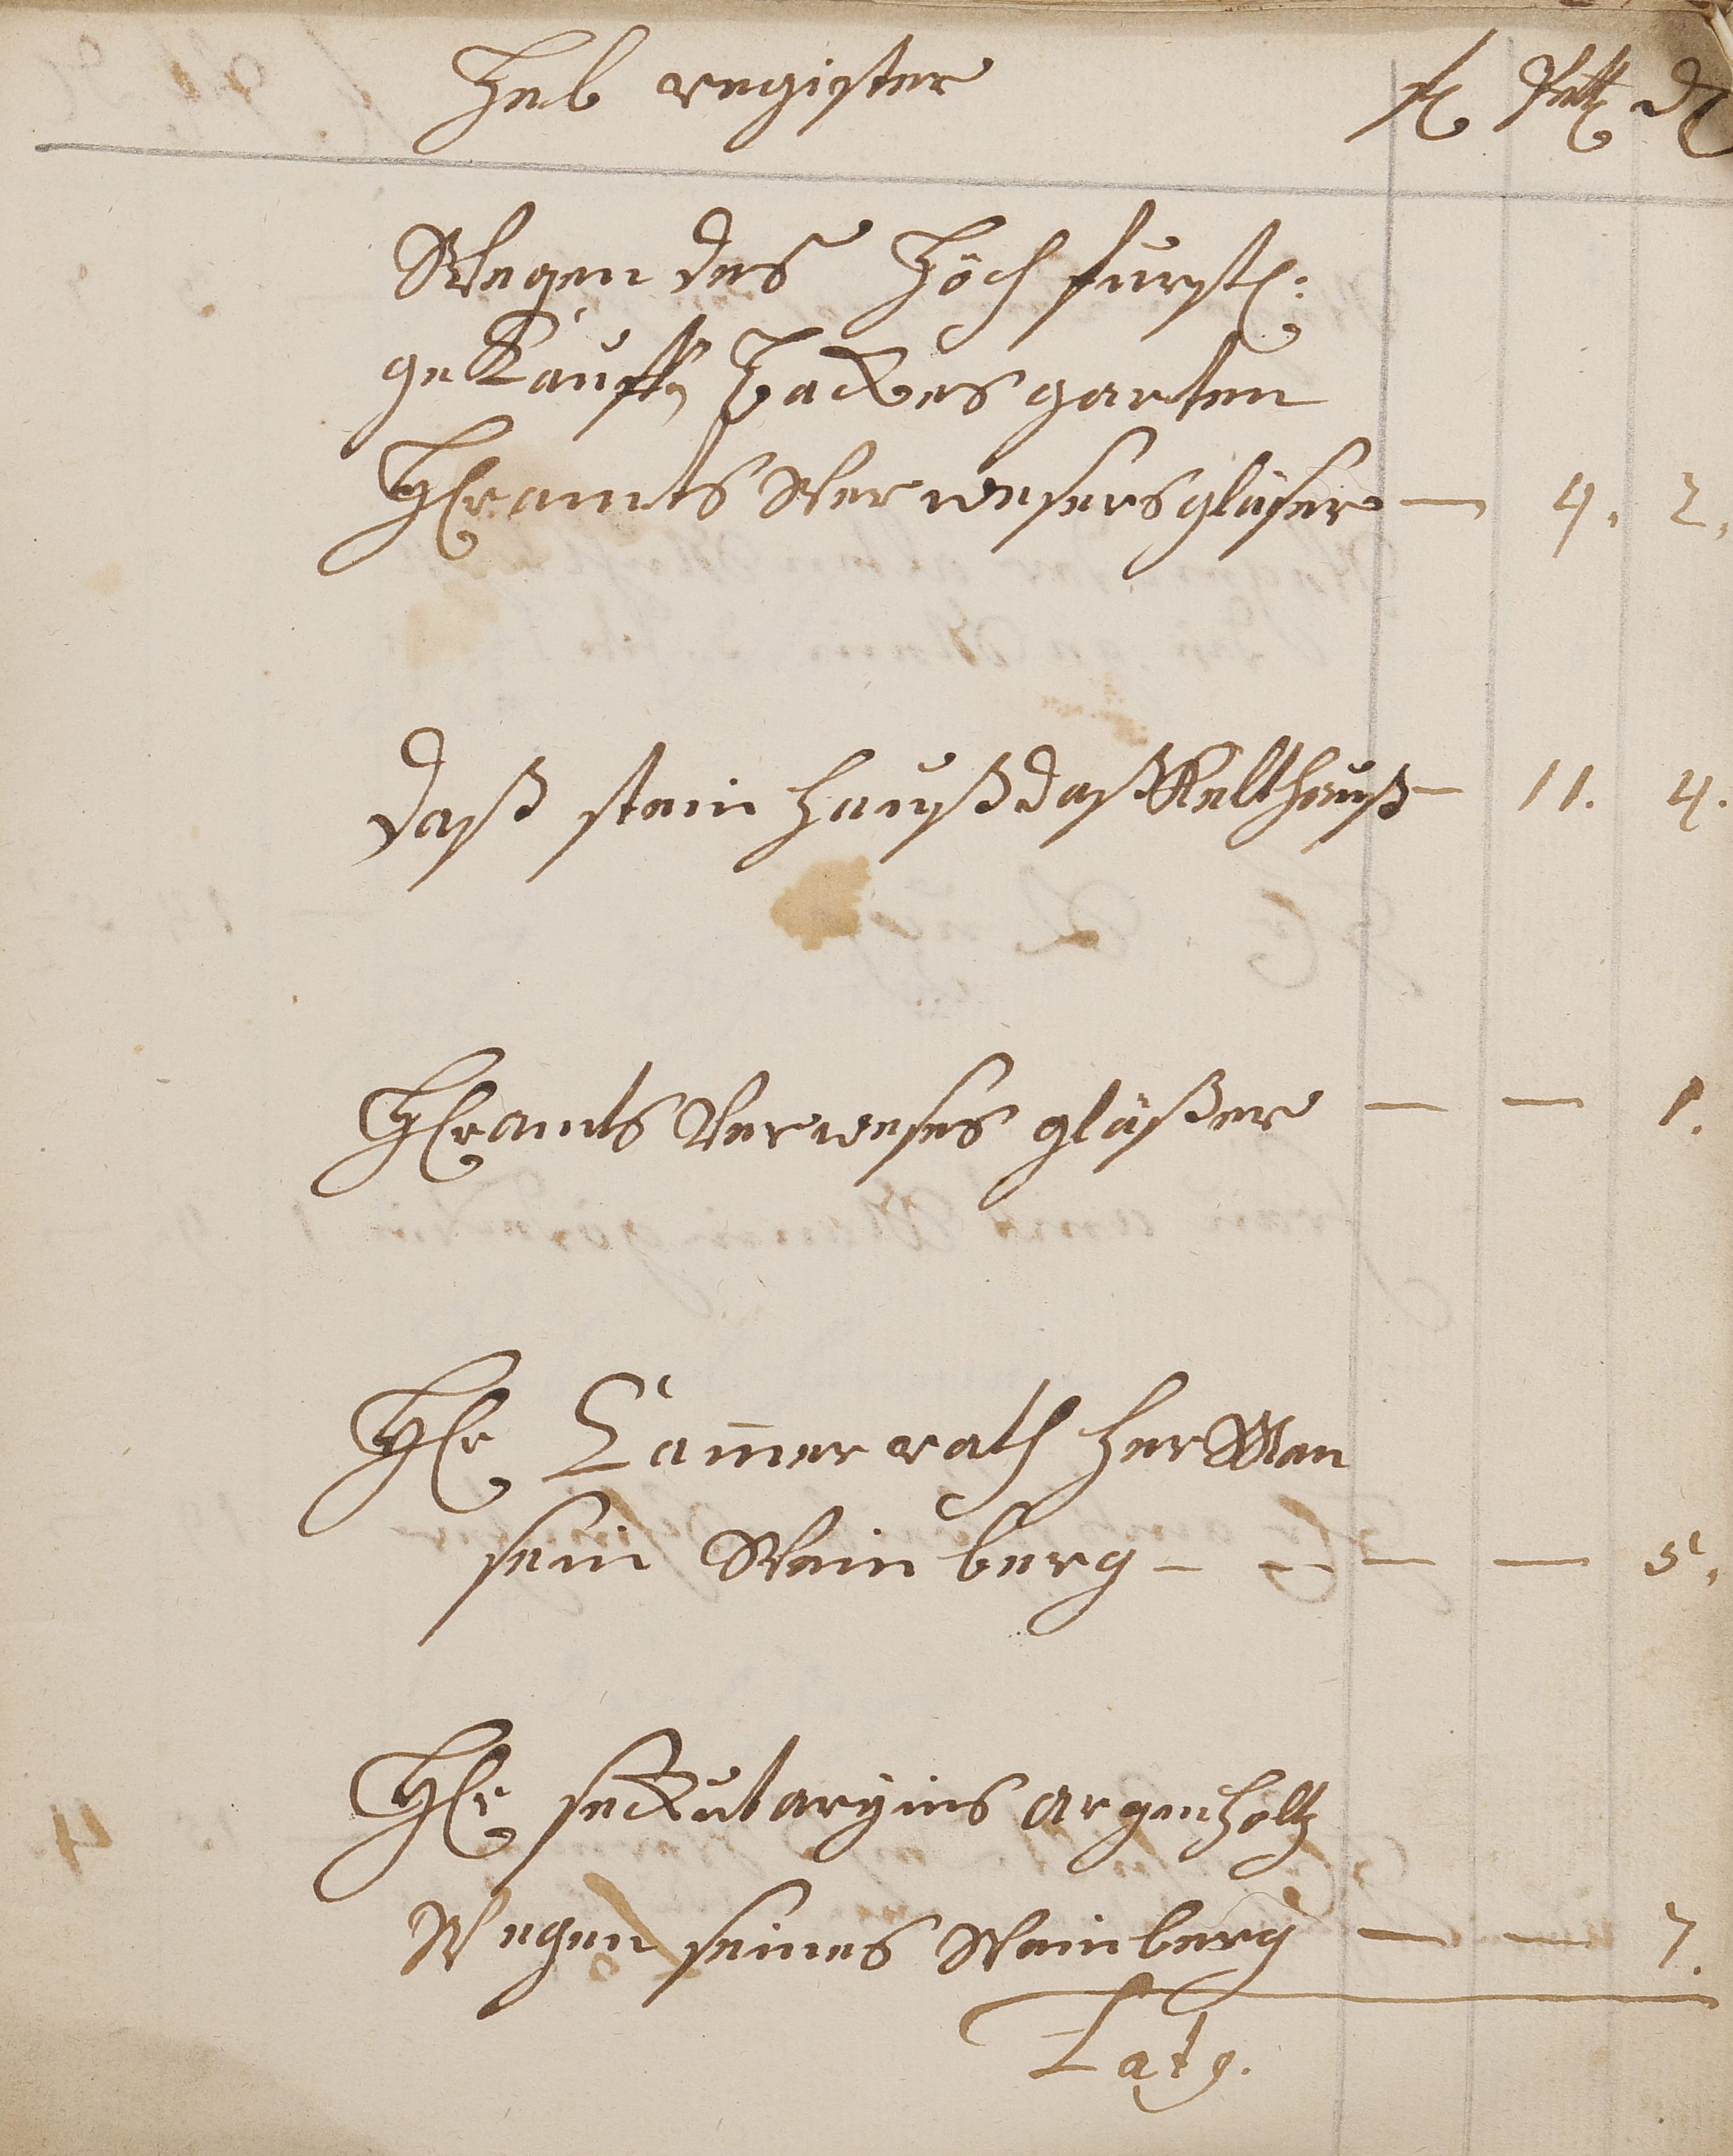 Heb register fl Btz ₰
Wegen des Höch fürstl:
gekaufften Hackes garten
HEr amts Verwesers gläser — 4. 2.
daß stein hauß daß Kelthauß — 11. 4.
HEr amts Verweses gläßer — — 1.
HEr Cam̄er rath herMan
sein Wein berg — — — — 5.
HEr seckutaryius argenholtz
Wegen seines Weinberg — — 7.
Lat9.